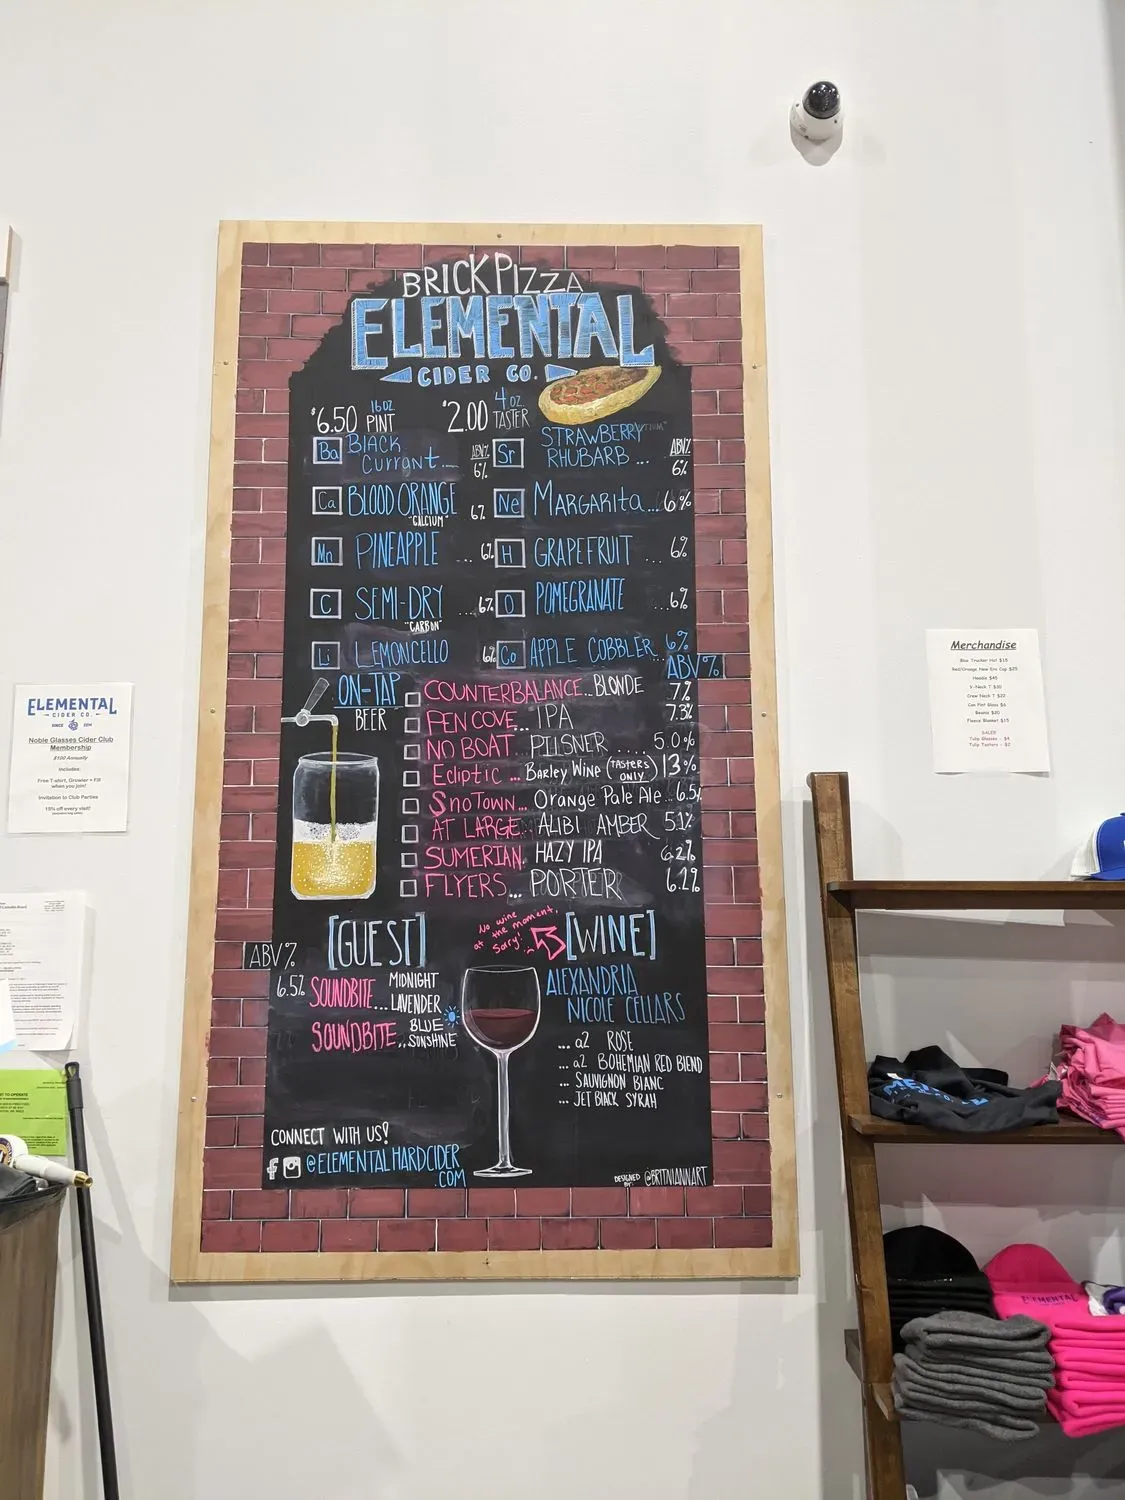 BRICK PIZZA
ELEMENTAL
CIDER CO.
$6.50 16 OZ. PINT $2.00 4 OZ. TASTER
Ba BLACK CURRANT... ABV% 6%
Sr STRAWBERRY RHUBARB... ABV% 6%
Ca BLOOD ORANGE "CALCIUM" 6%
Ne MARGARITA... 6%
Mn PINEAPPLE ... 6%
H GRAPEFRUIT ... 6%
C SEMI-DRY "CARBON" ... 6%
O POMEGRANATE ... 6%
Li LEMONCELLO 6%
Co APPLE COBBLER... 6%
ON-TAP BEER
ABV%
COUNTERBALANCE... BLONDE 7%
PEN COVE... IPA 7.3%
NO BOAT... PILSNER ..... 5.0%
Ecliptic ... Barley Wine (TASTERS ONLY) 13%
SnoTown... Orange Pale Ale... 6.5%
AT LARGE... ALIBI AMBER 5.1%
SUMERIAN. HAZY IPA 6.2%
FLYERS... PORTER 6.1%
[GUEST]
ABV%
6.5% SOUNDBITE... MIDNIGHT LAVENDER
SOUNDBITE... BLUE SONSHINE
No wine at the moment, Sorry!
[WINE]
ALEXANDRIA
NICOLE CELLARS
... a2 ROSE
... a2 BOHEMIAN RED BLEND
... SAUVIGNON BLANC
... JET BLACK SYRAH
CONNECT WITH US!
@ELEMENTALHARDCIDER
.COM
DESIGNED BY: @BRITNIANNART
ELEMENTAL
CIDER CO.
SINCE 2014
Noble Glasses Cider Club
Membership
$100 Annually
Includes:
Free T-shirt, Growler + Fill
when you join!
Invitation to Club Parties
15% off every visit!
Merchandise
Blue Trucker Hat $15
Red/Orange New Era Cap $25
Hoodie $45
V-Neck T $20
Crew Neck T $22
Can Pint Glass $6
Beanie $20
Fleece Blanket $15
SALE!!
Tulip Glasses - $4
Tulip Tasters - $2
ELEMENTAL